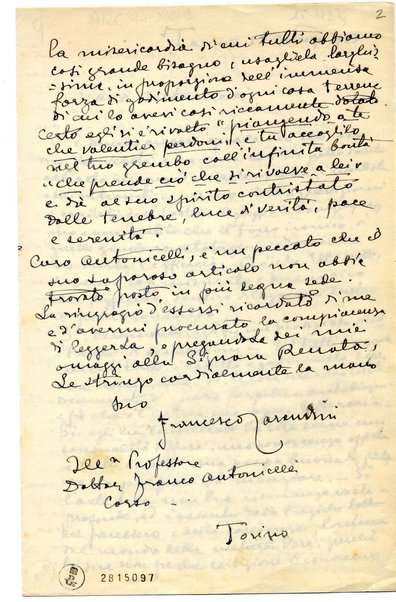 2
la misericordia di cui tutti abbiamo
così grande bisogno, usagliela larghis-
sima, in proporzione dell'immensa
forza di godimento d'ogni cosa terrena
di cui lo avevi così riccamente dotato.
Certo egli si è rivolto "piangendo, a te
che volentier perdoni, e tu accoglilo
nel tuo grembo coll'infinita bontà
"che prende ciò che si rivolve a lei"
e dà al suo spirito contristato
dalle tenebre, luce di verità, pace
e serenità.
Caro Antonicelli, è un peccato che il
suo saporoso articolo non abbia
trovato posto in più degna sede.
La ringrazio d'essersi ricordato di me
e d'avermi procurato la compiacenza
di leggerla, e pregandola dei miei
omaggi alla Signora Renata,
Le stringo cordialmente la mano
Suo
Francesco
Ill. Professore
Dottor Franco Antonicelli
Corso ...
Torino
2815097